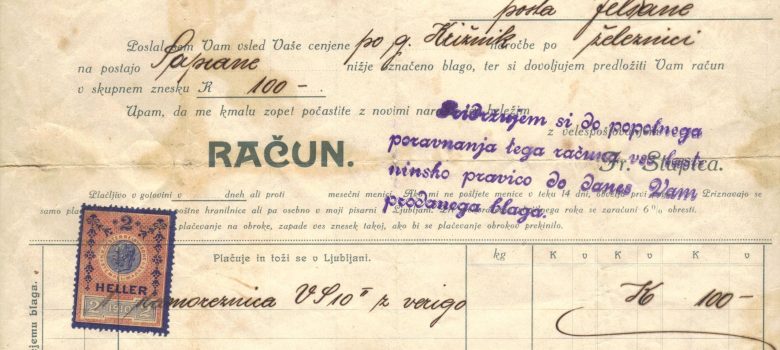 pošta Jelšane
Poslal sem Vam vsled Vaše cenjene po g. Križnik naročbe po železnici
na postajo Sapiane nižje označeno blago, ter si dovoljujem predložiti Vam račun
v skupnem znesku K 100-
Upam, da me kmalu zopet počastite z novimi naročili, beležim
z velespoštovanjem
Fr. Stupica.
Pridržujem si do popolnega
poravnanja tega računa vso last
ninsko pravico do danes Vam
prodanega blaga.
RAČUN.
Plačljivo v gotovini v dneh ali proti mesečni menici. Ako mi ne pošljete menice v teku 14 dni, obvelja prvi Priznavajo se
samo plačila poštne hranilnice ali pa osebno v moji pisarni v Ljubljani. Po roka se zaračuni 6% obresti.
plačevanje na obroke, zapade ves znesek takoj, ako bi se plačevanje obrokov prekinilo.
2
HELLER
2 1910 2
Plačuje in toži se v Ljubljani.
kg
K v K v
jemu blaga.
Slamoreznica VS10 z verigo K 100-